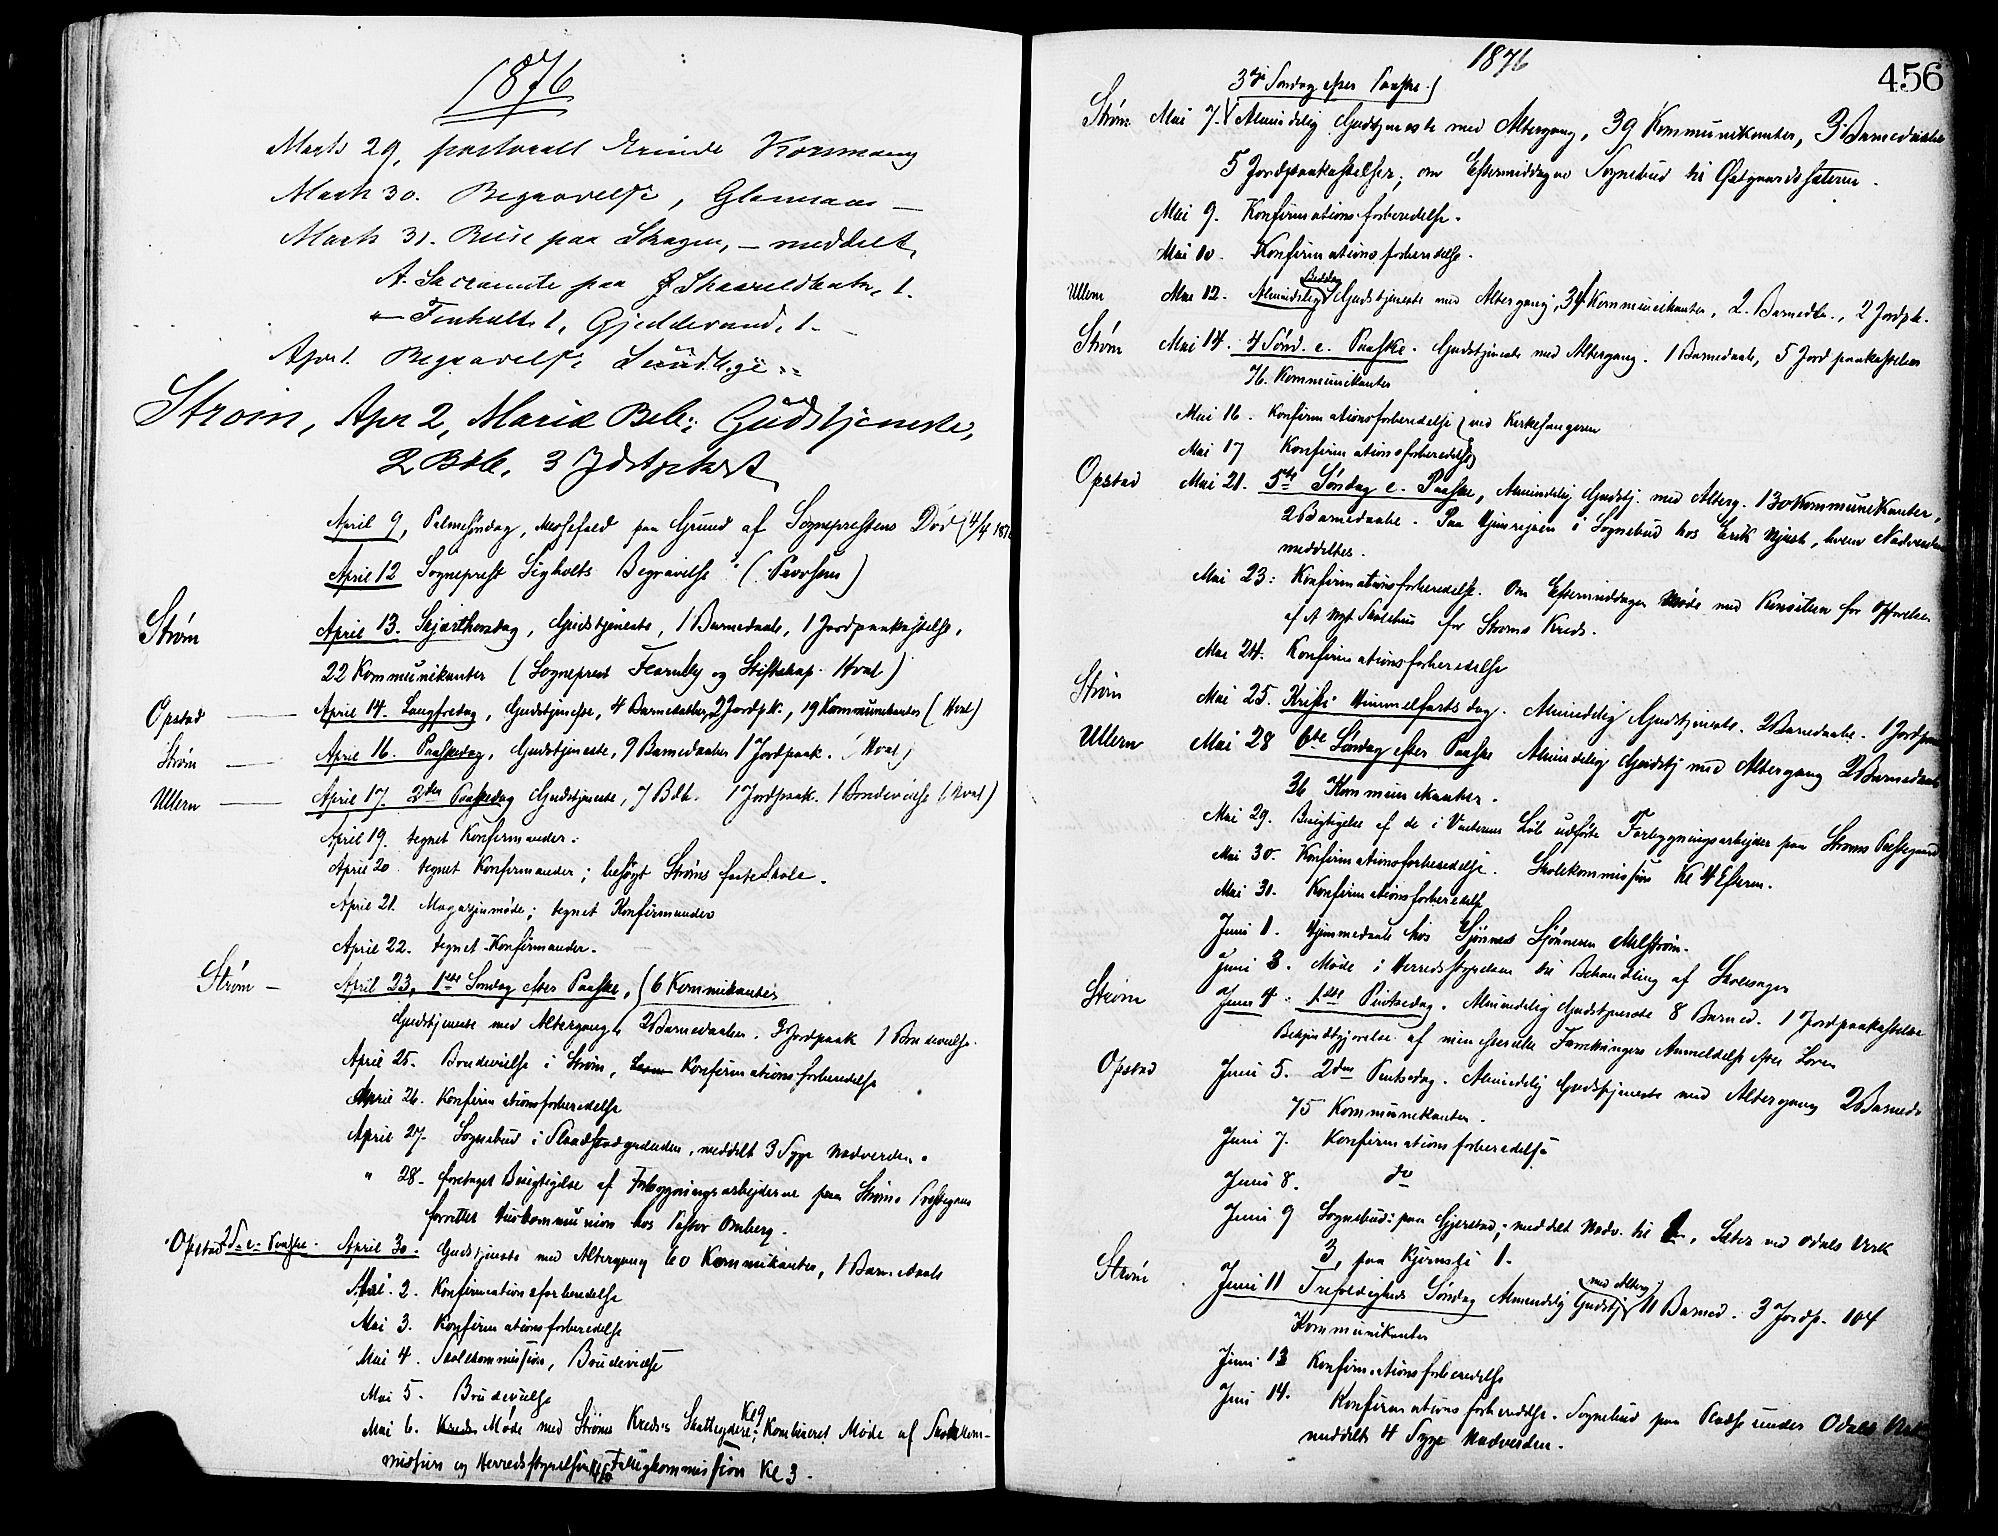 1876
Marts 29, pastorall Erinde Korsmoeng
Marts 30. Begravelse,
Marts 31. Reise paa Skagen, – meddelt
A. Sacramente paa 1.
Fenholt 1, Gjeddevand, 1.
Apr 1. Begravelse
Strøm, Apr 2, Mariæ Beb: Gudstjeneste,
2 Bdb, 3
April 9, Palmesøndag, Messefald paa Grund af Sogneprestens Død (4/4 187
April 12 Sogneprest Sigholts Begravelse (Provsten)
Strøm April 13. Skjærthorsdag, Gudstjeneste, 1 Barnedaab, 1 Jordpaakastelse,
22 Kommunikanter (Sogneprest Fearnley og Stiftskap. Hval)
Opstad April 14. Langfredag, Gudstjeneste, 4 Barnedaab, 2 Jordpk., 19 Kommunikanter (Hval)
Strøm April 16. Paaskedag, Gudstjeneste, 9 Barnedaaber 1 Jordpaak. (Hval)
Ullern April 17. 2den Paaskedag Gudstjeneste, 7 Bdb. 1 Jordpaak. 1 Brudevielse (Hval)
April 19. tegnet Konfirmander.
April 20. tegnet Konfirmander; besøgt Strøms faste Skole.
April 21. Magazinmøde; tegnet Konfirmander
April 22. tegnet Konfirmander.
Strøm – April 23. 1ste Søndag efter Paaske, 6 Kommikanter
Gudstjeneste med Altergang, 2 Barnedaaber. 3 Jordpaak 1 Brudevielse.
April 25. Brudevielse i Strøm, Konfirmationsforberedelse
April 26. Konfirmationsforberedelse
April 27. Sognebud i meddelt 3 Syge Nadverden.
" 28. foretaget Besigtigelse af Forbygningsarbejderne paa Strøms Prestegaard
forrettet Huskommunion hos Pastor Omberg.
Opstad 2 S. e. Paaske. April 30. Gudstjeneste med Altergang 60 Kommikanter, 1 Barnedaab
Mai 2. Konfirmationsforberedelse
Mai 3. Konfirmationsforberedelse
Mai 4. Skolekommission, Brudevielse
Mai 5. Brudevielse
Mai 6. Møde med Strøms Kreds's Skatteydere Kl 9; Kombineret Møde af Skolekom-
mission og Herredsstyrelsen Fattigkommission Kl 3.
1876
456
3die Søndag efter Paaske.
Strøm Mai 7. Almindelig Gudstjeneste med Altergang, 39 Kommunikanter, 3 Barnedaabe
5 Jordpaakastelser; om Eftermiddagen Sognebud til Ødegaardssæteren.
Mai 9. Konfirmationsforberedelse.
Mai 10. Konfirmationsforberedelse.
Ullern Mai 12. Almindelig Bededag Gudstjeneste med Altergang, 39 Kommunikanter, 2 Barnedb., 2 Jordpk.
Strøm Mai 14. 4 Sønd. e. Paaske. Gudstjeneste med Altergang. 1 Barnedaab, 5 Jordpaakastelser
76. Kommunikanter
Mai 16. Konfirmationsforberedelse ved Kirkesangeren
Mai 17 Konfirmationsforberedelse
Opstad Mai 21. 5te Søndag e. Paaske, Almindelig Gudstj. med Alterg. 130 Kommunikanter,
2 Barnedaabe. Paa Hjemrejsen i Sognebud hos Erik, hvem Nadverden
meddeltes.
Mai 23: Konfirmationsforberedelse. Om Eftermiddagen Møde med for Opførelse
af et nyt Skolehus for Strøms Kreds.
Mai 24. Konfirmationsforberedelse
Strøm Mai 25. Kristi Himmelfartsdag. Almindelig Gudstjeneste. 2 Barnedaabe. 1 Jordpaak
Ullern Mai 28 6te Søndag efter Paaske Almindelig Gudstj med Altergang 2 Barnedaab
36 Kommunikanter.
Mai 29. Besigtigelse af de i Vaarens Løb udførte Forbygningsarbejder paa Strøms Prestegaard
Mai 30. Konfirmationsforberedelse. Skolekommission Kl 4 Efterm.
Mai 31. Konfirmationsforberedelse
Juni 1. Hjemmedaab hos
Juni 3. Møde i Herredsstyrelsen til Behandling af Skolesager
Strøm Juni 4. 1ste Pintsedag. Almindelig Gudstjeneste 8 Barned. 1 Jordpaakastelse
Bekjendtgjørelse af Anmeldelse efter Loven
Opstad Juni 5. 2den Pintsedag. Almindelig Gudstjeneste med Altergang 2 Barneds
75 Kommunikanter.
Juni 7. Konfirmationsforberedelse
Juni 8. do
Juni 9 Sognebud: paa Gjerstad, meddelt Nadv. til 1, Sæter ved Odals Verk
3, paa Bjørnsli 1.
Strøm Juni 11 Trefoldigheds Søndag Almindelig Gudstj med Alterg. 11 Barned. 3 Jordp. 104
Kommunikanter
Juni 13 Konfirmationsforberedelse
Juni 14. Konfirmationsforberedelse. Sognebud paa Pladse under Odals Verk
meddelt 4 Syge Nadverden.